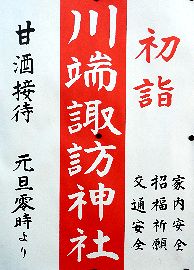 初詣
家内安全
招福祈願
交通安全
川端諏訪神社
甘酒接待
元旦零時より